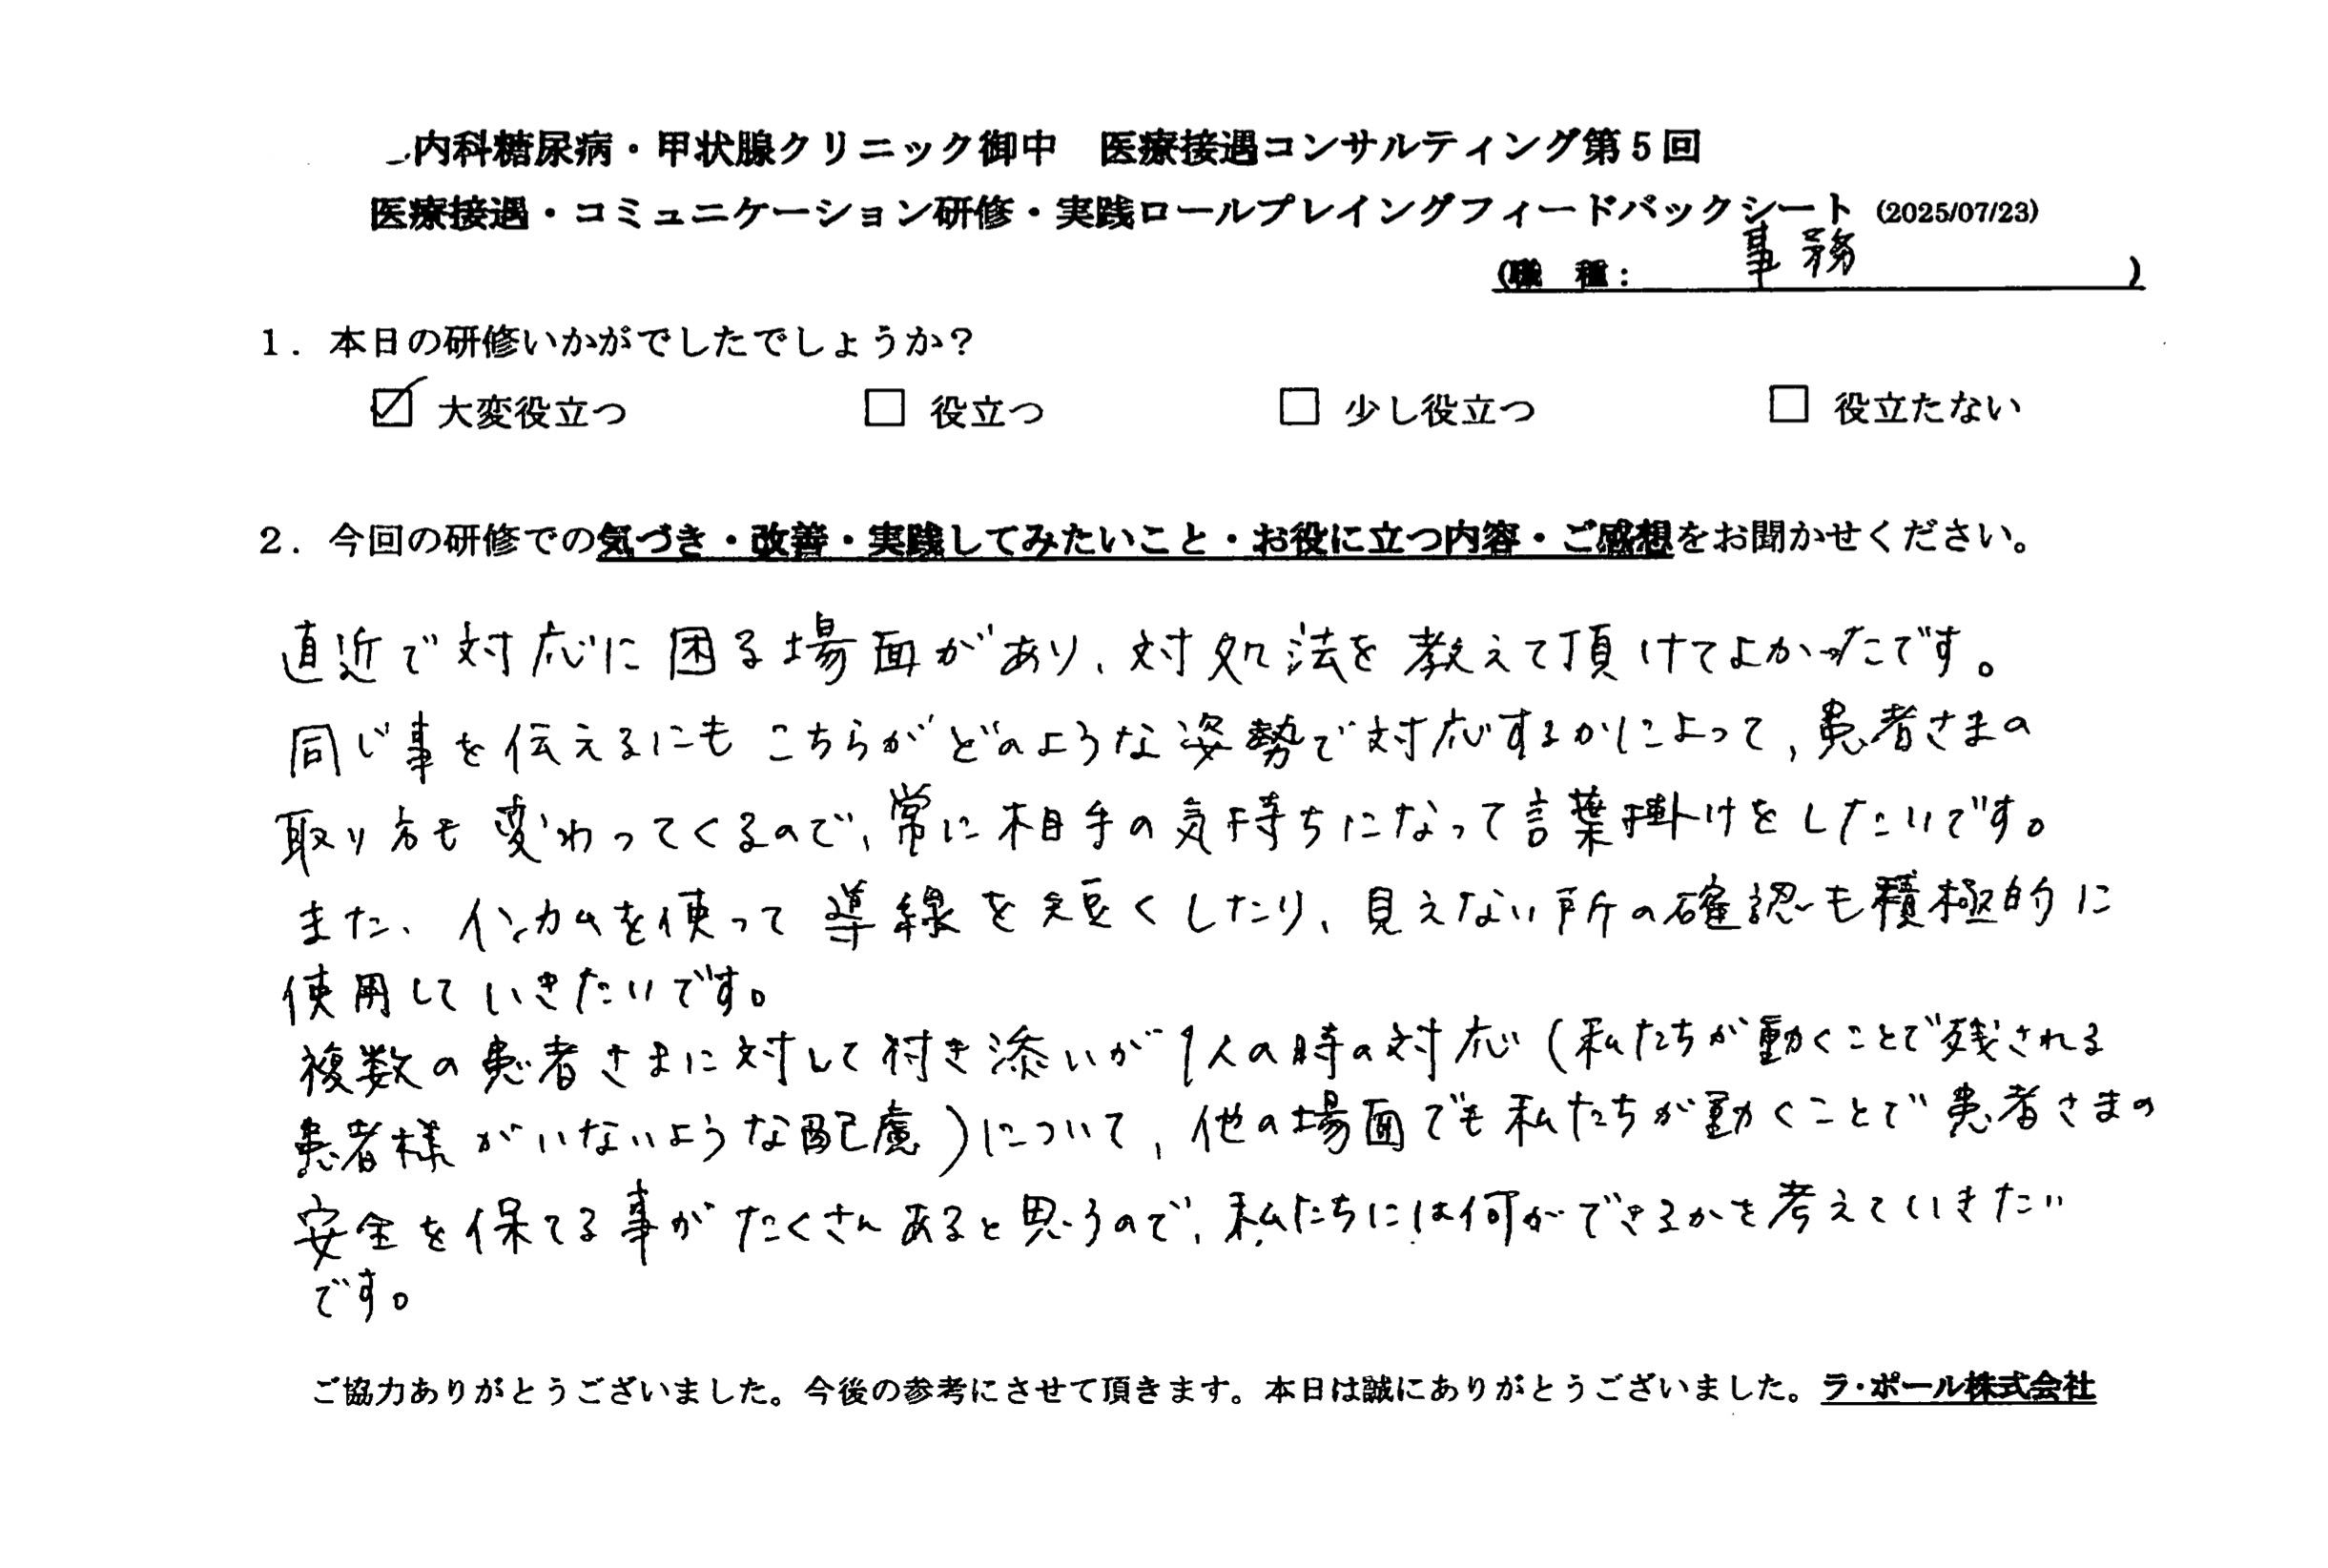 内科糖尿病・甲状腺クリニック御中　医療接遇コンサルティング第5回
医療接遇・コミュニケーション研修・実践ロールプレイングフィードバックシート (2025/07/23)
(職　種：事務)
1．本日の研修いかがでしたでしょうか？
☑ 大変役立つ　□ 役立つ　□ 少し役立つ　□ 役立たない
2．今回の研修での気づき・改善・実践してみたいこと・お役に立つ内容・ご感想をお聞かせください。
直近で対応に困る場面があり、対処法を教えて頂けてよかったです。
同じ事を伝えるにもこちらがどのような姿勢で対応するかによって、患者さまの
取り方も変わってくるので、常に相手の気持ちになって言葉掛けをしたいです。
また、インカムを使って導線を短くしたり、見えない所の確認も積極的に
使用していきたいです。
複数の患者さまに対して付き添いが1人の時の対応（私たちが動くことで残される
患者様がいないような配慮）について、他の場面でも私たちが動くことで患者さまの
安全を保てる事がたくさんあると思うので、私たちには何ができるかを考えていきたい
です。
ご協力ありがとうございました。今後の参考にさせて頂きます。本日は誠にありがとうございました。ラ・ポール株式会社